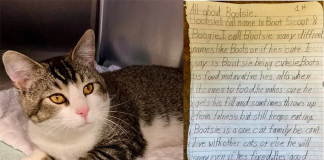 All about Bootsie.
Bootsie's full name is Boot Scoot &
Boogie. I call Bootsie many diffrent
names like Boots or if he's cute. I
say is Bootsie being cutesie. Boots
is food motivative he's
comes to food he makes sure he
gets his fill and sumtimes throws up
from fullness but still keeps eating.
Bootsie is a one cat family he can't
live with other cats or else he will